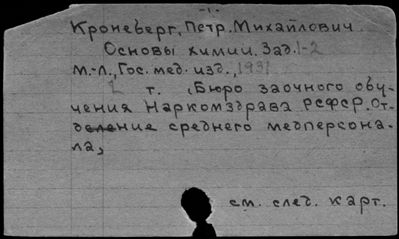 -1-
Кроневерг, Петр. Михайлович.
Основы химии. Зад. 1-2
М.-Л., Гос. мед. изд., 1931
2 т. (Бюро заочного обу-
чения Наркомздрава РСФСР. От-
деление среднего медперсона-
ла,
см. след. карт.